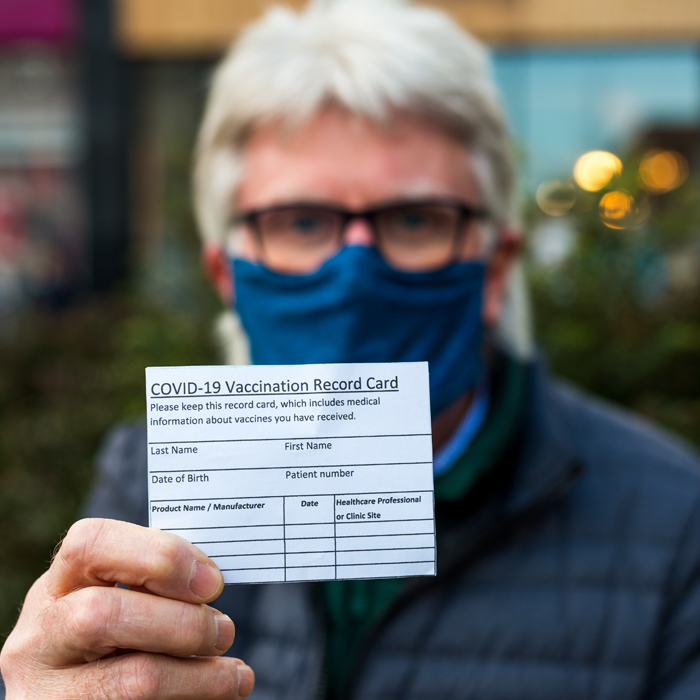 COVID-19 Vaccination Record Card
Please keep this record card, which includes medical
information about vaccines you have received.
Last Name First Name
Date of Birth Patient number
Product Name / Manufacturer Date Healthcare Professional
or Clinic Site